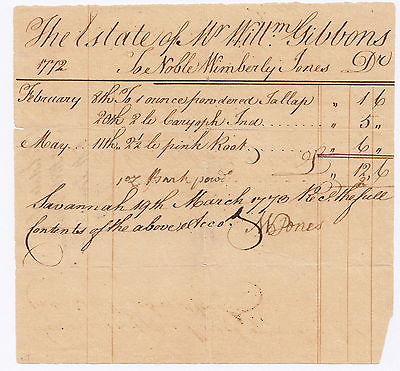 The Estate of Mr Willm. Gibbons
1772 To Noble Wimberly Jones Dr
February 8th To 1 ounce powdered Jallap " 1 6
20th 2 lb Caryoph Ind " 5 "
May 11th 2½ lb pink Root " 6 "
" 12 6
1 oz Bark powd.
Savannah 19th March 1773 Recd. the full
Contents of the above Acco.
NWJones